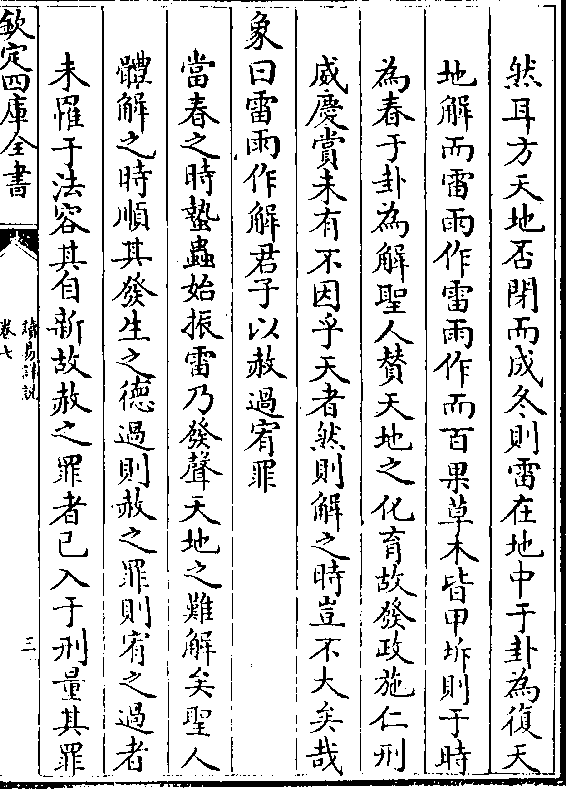 然耳方天地否閉而成冬則雷在地中于卦為復天
地解而雷雨作雷雨作而百果草木皆甲坼則于時
為春于卦為解聖人賛天地之化育故發政施仁刑
威慶賞未有不因乎天者然則解之時豈不大矣哉
象曰雷雨作解君子以赦過宥罪
當春之時蟄蟲始振雷乃發聲天地之難解矣聖人
體解之時順其發生之德過則赦之罪則宥之過者
未罹于法容其自新故赦之罪者已入于刑量其罪
欽定四庫全書
讀易詳說
卷七
三